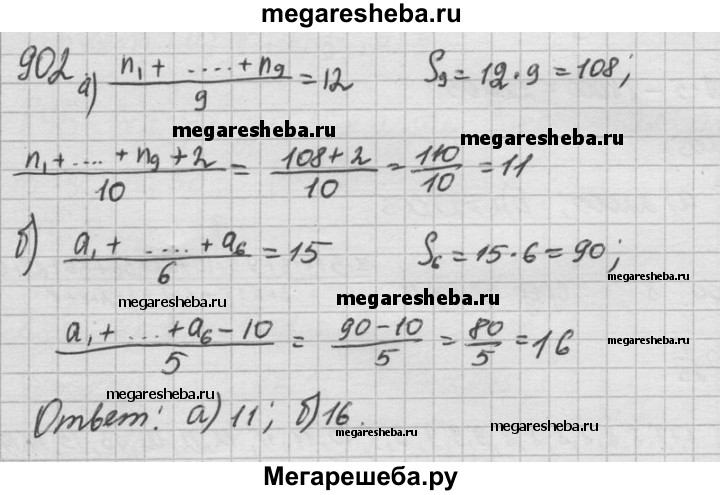 megaresheba.ru
902 а) (n₁ + .... + n₉)/9 = 12 S₉ = 12·9 = 108;
megaresheba.ru megaresheba.ru
(n₁ + ... + n₉ + 2)/10 = (108+2)/10 = 110/10 = 11
б) (a₁ + .... + a₆)/6 = 15 S₆ = 15·6 = 90;
megaresheba.ru
megaresheba.ru megaresheba.ru
(a₁ + ... + a₆ − 10)/5 = (90−10)/5 = 80/5 = 16
megaresheba.ru
megaresheba.ru megaresheba.ru
Ответ: а) 11; б) 16.
megaresheba.ru megaresheba.ru
Мегарешеба.ру